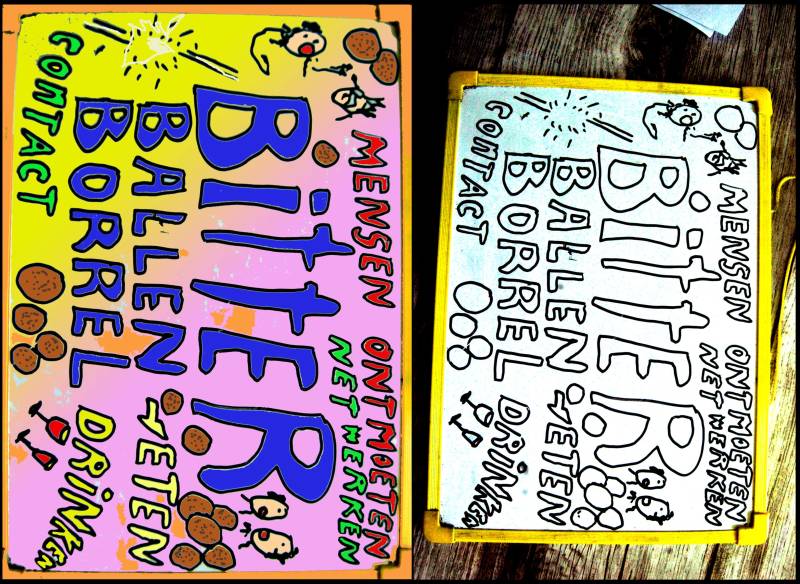 MENSEN ONTMOETEN
NETWERKEN
BitteR
BALLEN
ETEN
BORREL
DRiNKEN
CONTACT
MENSEN ONTMOETEN
NETWERKEN
BitteR
BALLEN
ETEN
BORREL
DRiNKEN
CONTACT